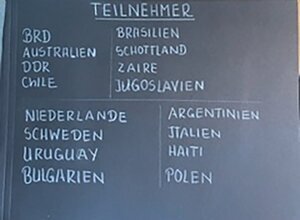 TEILNEHMER
BRD
AUSTRALIEN
DDR
CHILE
BRASILIEN
SCHOTTLAND
ZAIRE
JUGOSLAVIEN
NIEDERLANDE
SCHWEDEN
URUGUAY
BULGARIEN
ARGENTINIEN
ITALIEN
HAITI
POLEN